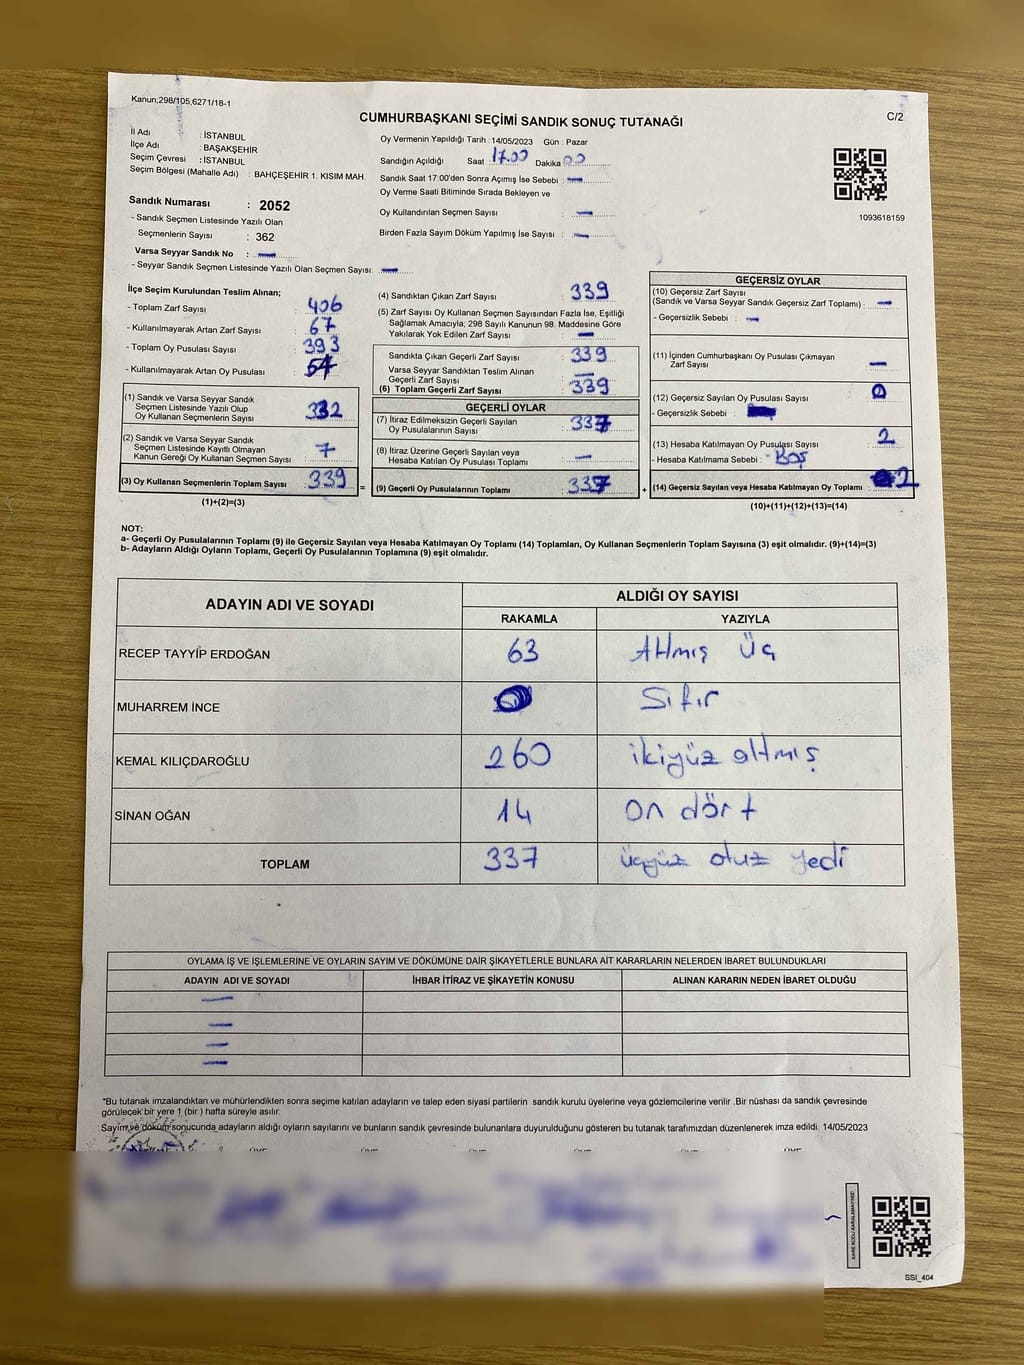 Kanun;298/105,6271/18-1
CUMHURBAŞKANI SEÇİMİ SANDIK SONUÇ TUTANAĞI
C/2
İl Adı : İSTANBUL
İlçe Adı : BAŞAKŞEHİR
Seçim Çevresi : İSTANBUL
Seçim Bölgesi (Mahalle Adı) : BAHÇEŞEHİR 1. KISIM MAH.
Sandık Numarası : 2052
- Sandık Seçmen Listesinde Yazılı Olan
Seçmenlerin Sayısı : 362
Varsa Seyyar Sandık No : —
- Seyyar Sandık Seçmen Listesinde Yazılı Olan Seçmen Sayısı: —
Oy Vermenin Yapıldığı Tarih : 14/05/2023 Gün : Pazar
Sandığın Açıldığı Saat : 17.00 Dakika : 00
Sandık Saat 17:00'den Sonra Açımış İse Sebebi : —
Oy Verme Saati Bitiminde Sırada Bekleyen ve
Oy Kullandırılan Seçmen Sayısı : —
Birden Fazla Sayım Döküm Yapılmış İse Sayısı : —
1093618159
İlçe Seçim Kurulundan Teslim Alınan;
- Toplam Zarf Sayısı : 406
- Kullanılmayarak Artan Zarf Sayısı : 67
- Toplam Oy Pusulası Sayısı : 393
- Kullanılmayarak Artan Oy Pusulası : 54
(1) Sandık ve Varsa Seyyar Sandık
Seçmen Listesinde Yazılı Olup
Oy Kullanan Seçmenlerin Sayısı : 332
(2) Sandık ve Varsa Seyyar Sandık
Seçmen Listesinde Kayıtlı Olmayan
Kanun Gereği Oy Kullanan Seçmen Sayısı : 7
(3) Oy Kullanan Seçmenlerin Toplam Sayısı : 339 =
(1)+(2)=(3)
(4) Sandıktan Çıkan Zarf Sayısı : 339
(5) Zarf Sayısı Oy Kullanan Seçmen Sayısından Fazla İse, Eşitliği
Sağlamak Amacıyla; 298 Sayılı Kanunun 98. Maddesine Göre
Yakılarak Yok Edilen Zarf Sayısı : —
Sandıkta Çıkan Geçerli Zarf Sayısı : 339
Varsa Seyyar Sandıktan Teslim Alınan
Geçerli Zarf Sayısı : —
(6) Toplam Geçerli Zarf Sayısı : 339
GEÇERLİ OYLAR
(7) İtiraz Edilmeksizin Geçerli Sayılan
Oy Pusulalarının Sayısı : 337
(8) İtiraz Üzerine Geçerli Sayılan veya
Hesaba Katılan Oy Pusulası Toplamı : —
(9) Geçerli Oy Pusulalarının Toplamı : 337 +
GEÇERSİZ OYLAR
(10) Geçersiz Zarf Sayısı
(Sandık ve Varsa Seyyar Sandık Geçersiz Zarf Toplamı) : —
- Geçersizlik Sebebi : —
(11) İçinden Cumhurbaşkanı Oy Pusulası Çıkmayan
Zarf Sayısı : —
(12) Geçersiz Sayılan Oy Pusulası Sayısı : 0
- Geçersizlik Sebebi :
(13) Hesaba Katılmayan Oy Pusulası Sayısı : 2
- Hesaba Katılmama Sebebi : Boş
(14) Geçersiz Sayılan veya Hesaba Katılmayan Oy Toplamı : 2
(10)+(11)+(12)+(13)=(14)
NOT:
a- Geçerli Oy Pusulalarının Toplamı (9) ile Geçersiz Sayılan veya Hesaba Katılmayan Oy Toplamı (14) Toplamları, Oy Kullanan Seçmenlerin Toplam Sayısına (3) eşit olmalıdır. (9)+(14)=(3)
b- Adayların Aldığı Oyların Toplamı, Geçerli Oy Pusulalarının Toplamına (9) eşit olmalıdır.
ADAYIN ADI VE SOYADI ALDIĞI OY SAYISI
RAKAMLA YAZIYLA
RECEP TAYYİP ERDOĞAN 63 Altmış Üç
MUHARREM İNCE 0 Sıfır
KEMAL KILIÇDAROĞLU 260 ikiyüz altmış
SİNAN OĞAN 14 on dört
TOPLAM 337 üçyüz otuz yedi
OYLAMA İŞ VE İŞLEMLERİNE VE OYLARIN SAYIM VE DÖKÜMÜNE DAİR ŞİKAYETLERLE BUNLARA AİT KARARLARIN NELERDEN İBARET BULUNDUKLARI
ADAYIN ADI VE SOYADI İHBAR İTİRAZ VE ŞİKAYETİN KONUSU ALINAN KARARIN NEDEN İBARET OLDUĞU
—
—
—
—
*Bu tutanak imzalandıktan ve mühürlendikten sonra seçime katılan adayların ve talep eden siyasi partilerin sandık kurulu üyelerine veya gözlemcilerine verilir .Bir nüshası da sandık çevresinde
görülecek bir yere 1 (bir ) hafta süreyle asılır.
Sayım ve döküm sonucunda adayların aldığı oyların sayılarını ve bunların sandık çevresinde bulunanlara duyurulduğunu gösteren bu tutanak tarafımızdan düzenlenerek imza edildi. 14/05/2023
KARE KODU KARALAMAYINIZ!
SSI_404